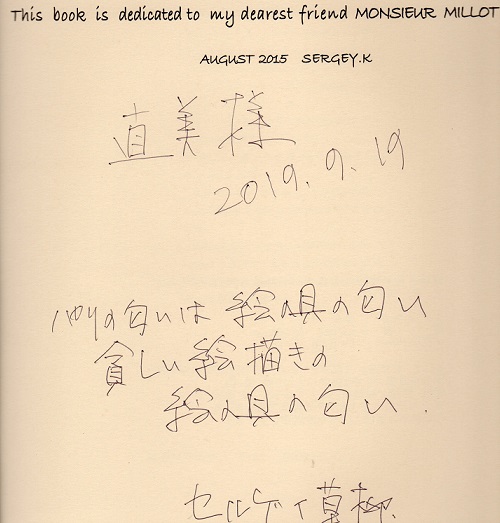 This book is dedicated to my dearest friend MONSIEUR MILLOT
AUGUST 2015 SERGEY.K
直美様
2019.9.19
パリの匂いは 絵の具の匂い
貧しい絵描きの
絵の具の匂い.
セルゲイ草柳.